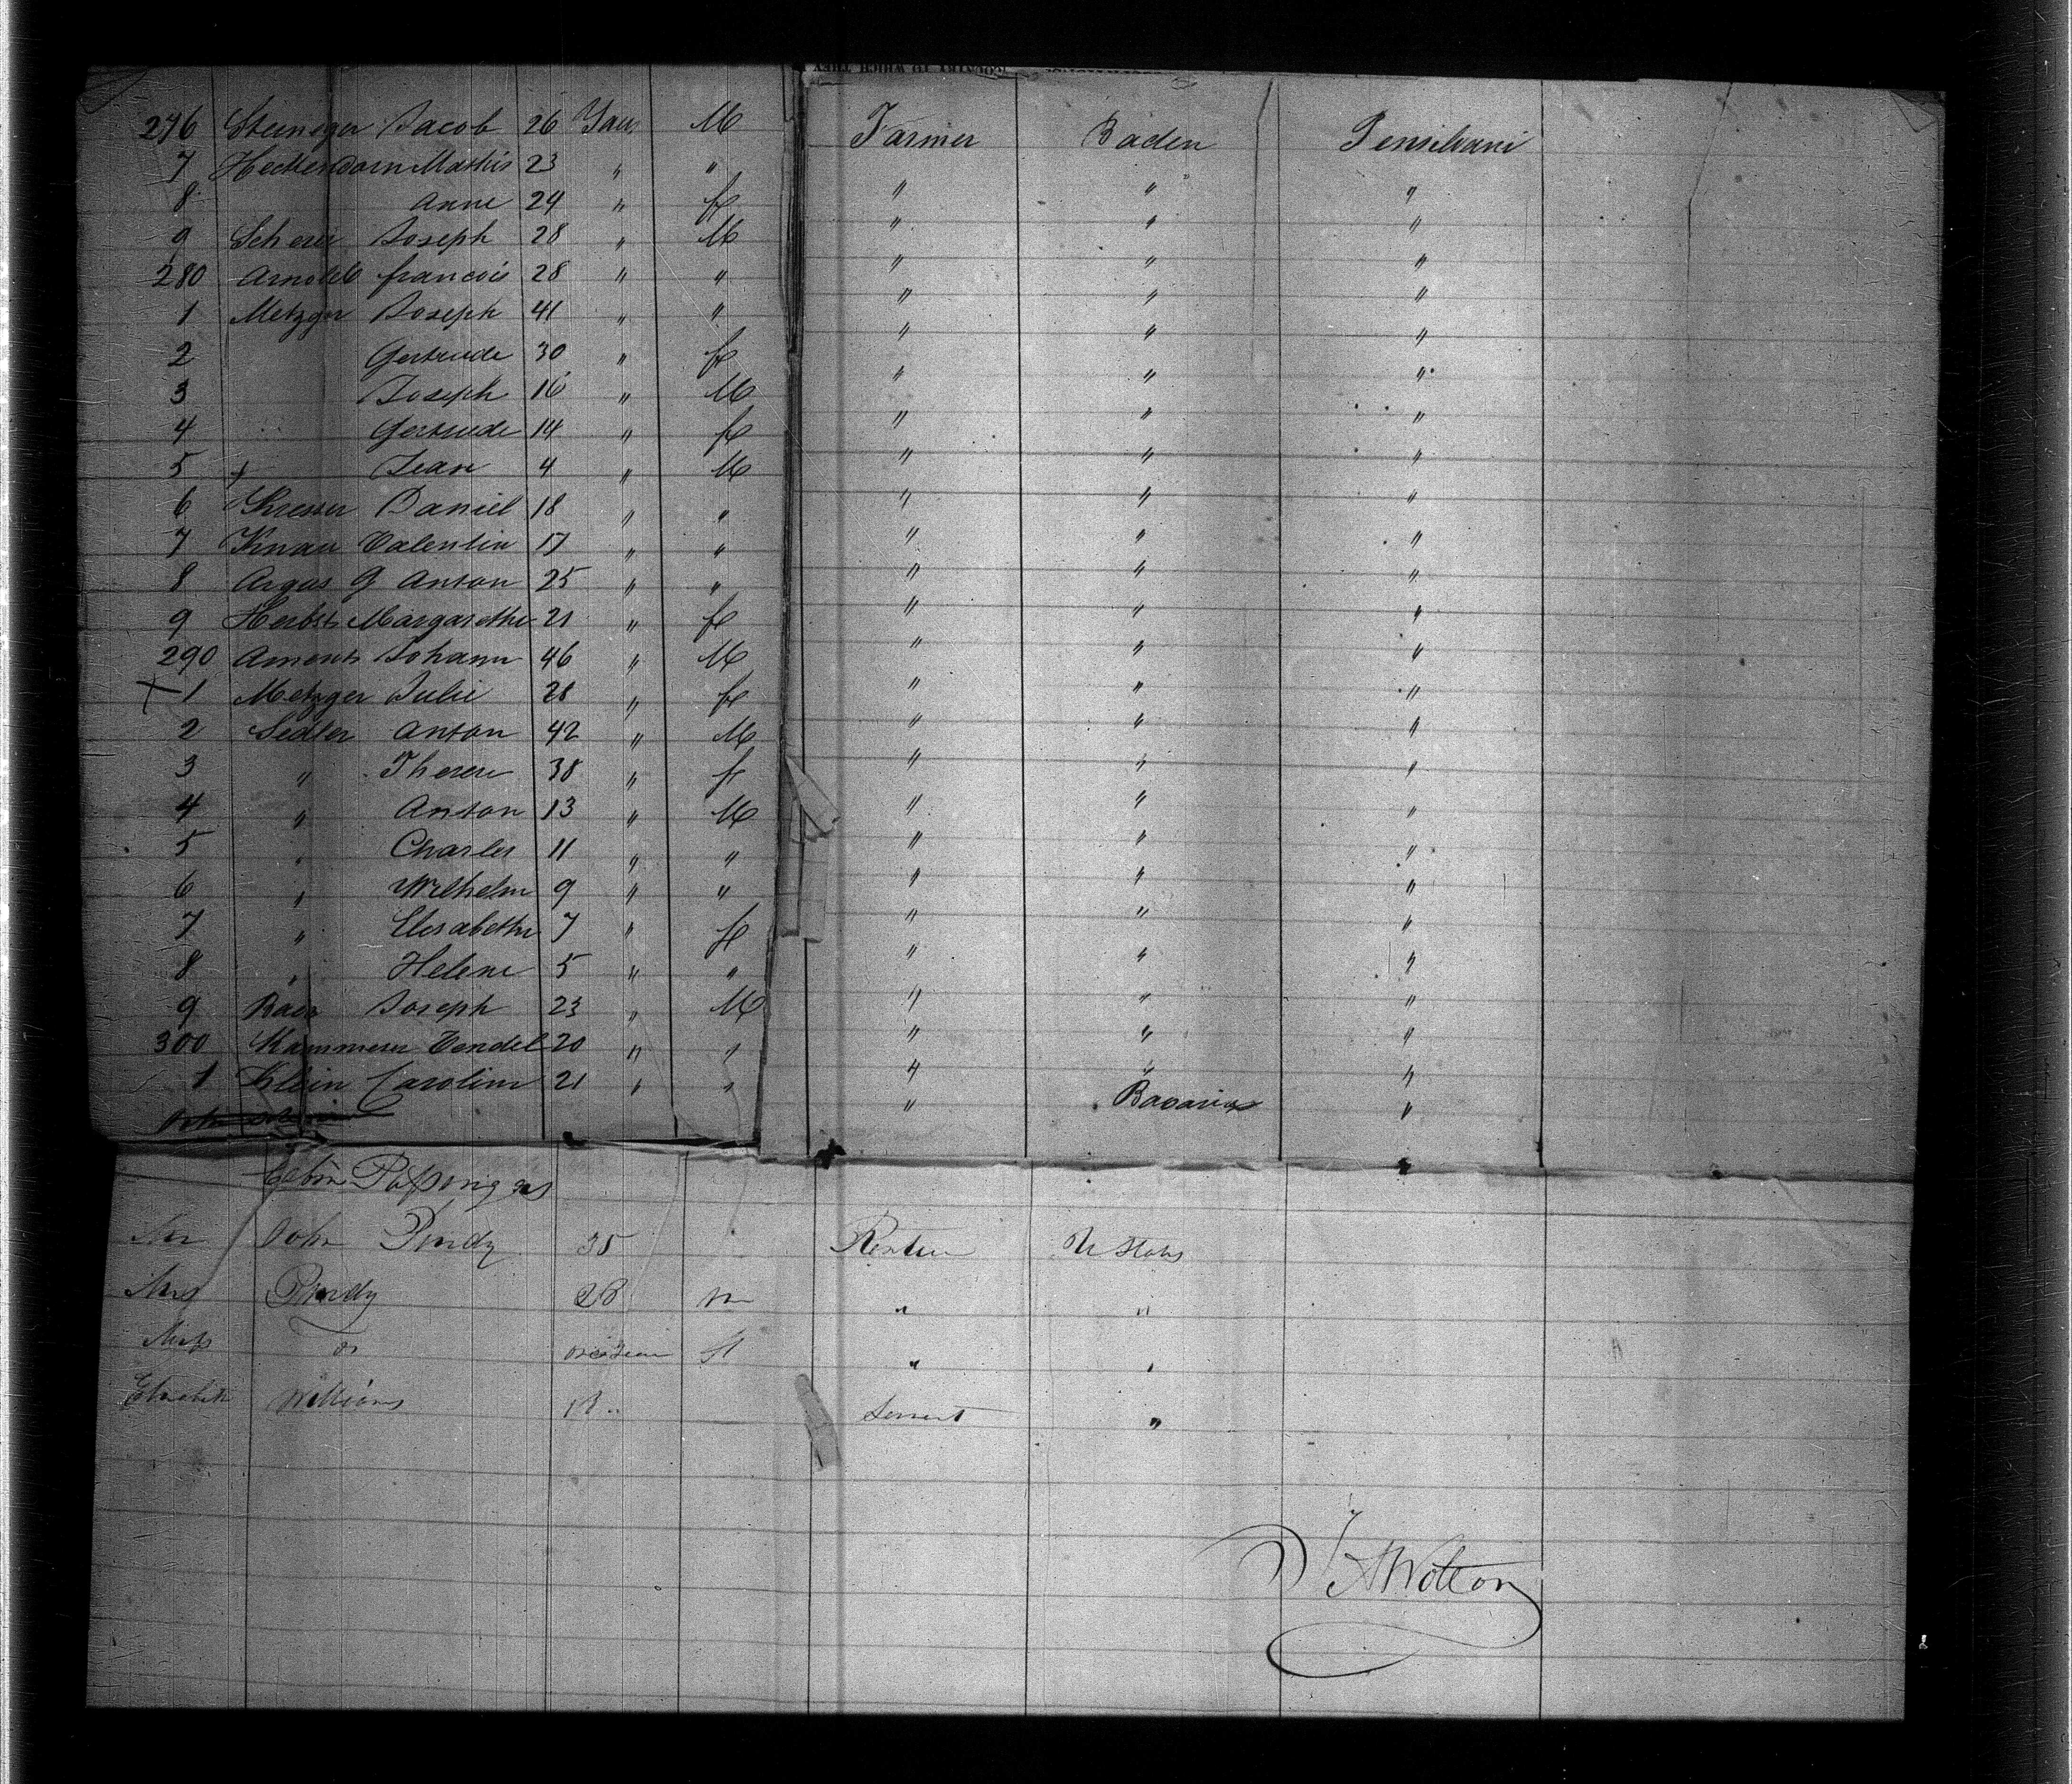 276 Steineger Jacob 26 Years M Farmer Baden Pensilvani
7 Heckendorn Mathis 23 " " " " "
8 Anne 24 " fe " " "
9 Scherer Joseph 28 " M " " "
280 Arnold francois 28 " " " " "
1 Metzger Joseph 41 " " " " "
2 Gertrude 30 " fe " " "
3 Joseph 16 " M " " "
4 Gertrude 14 " fe " " "
5 + Jean 4 " M " " "
6 Daniel 18 " " " " "
7 Knau Valentin 17 " " " " "
8 Argus G Anton 25 " " " " "
9 Herbst Margarethe 21 " fe " " "
290 Johann 46 " M " " "
+ 1 Metzger Julie 28 " fe " " "
2 Sedler Anton 42 " M " " "
3 " Therese 38 " fe " " "
4 " Anton 13 " M " " "
5 " Charles 11 " " " " "
6 " Wilhelm 9 " " " " "
7 " Elisabethe 7 " fe " " "
8 " Helene 5 " " " " "
9 Joseph 23 " M " " "
300 Kammerer Vendel 20 " " " " "
1 Klein Caroline 21 " " " Bavaria "
Cabin Passengers
John Purdy 35 U States
Mrs Purdy 28 " "
Miss do " "
Elizabeth Williams 18 Servent "
Wotton